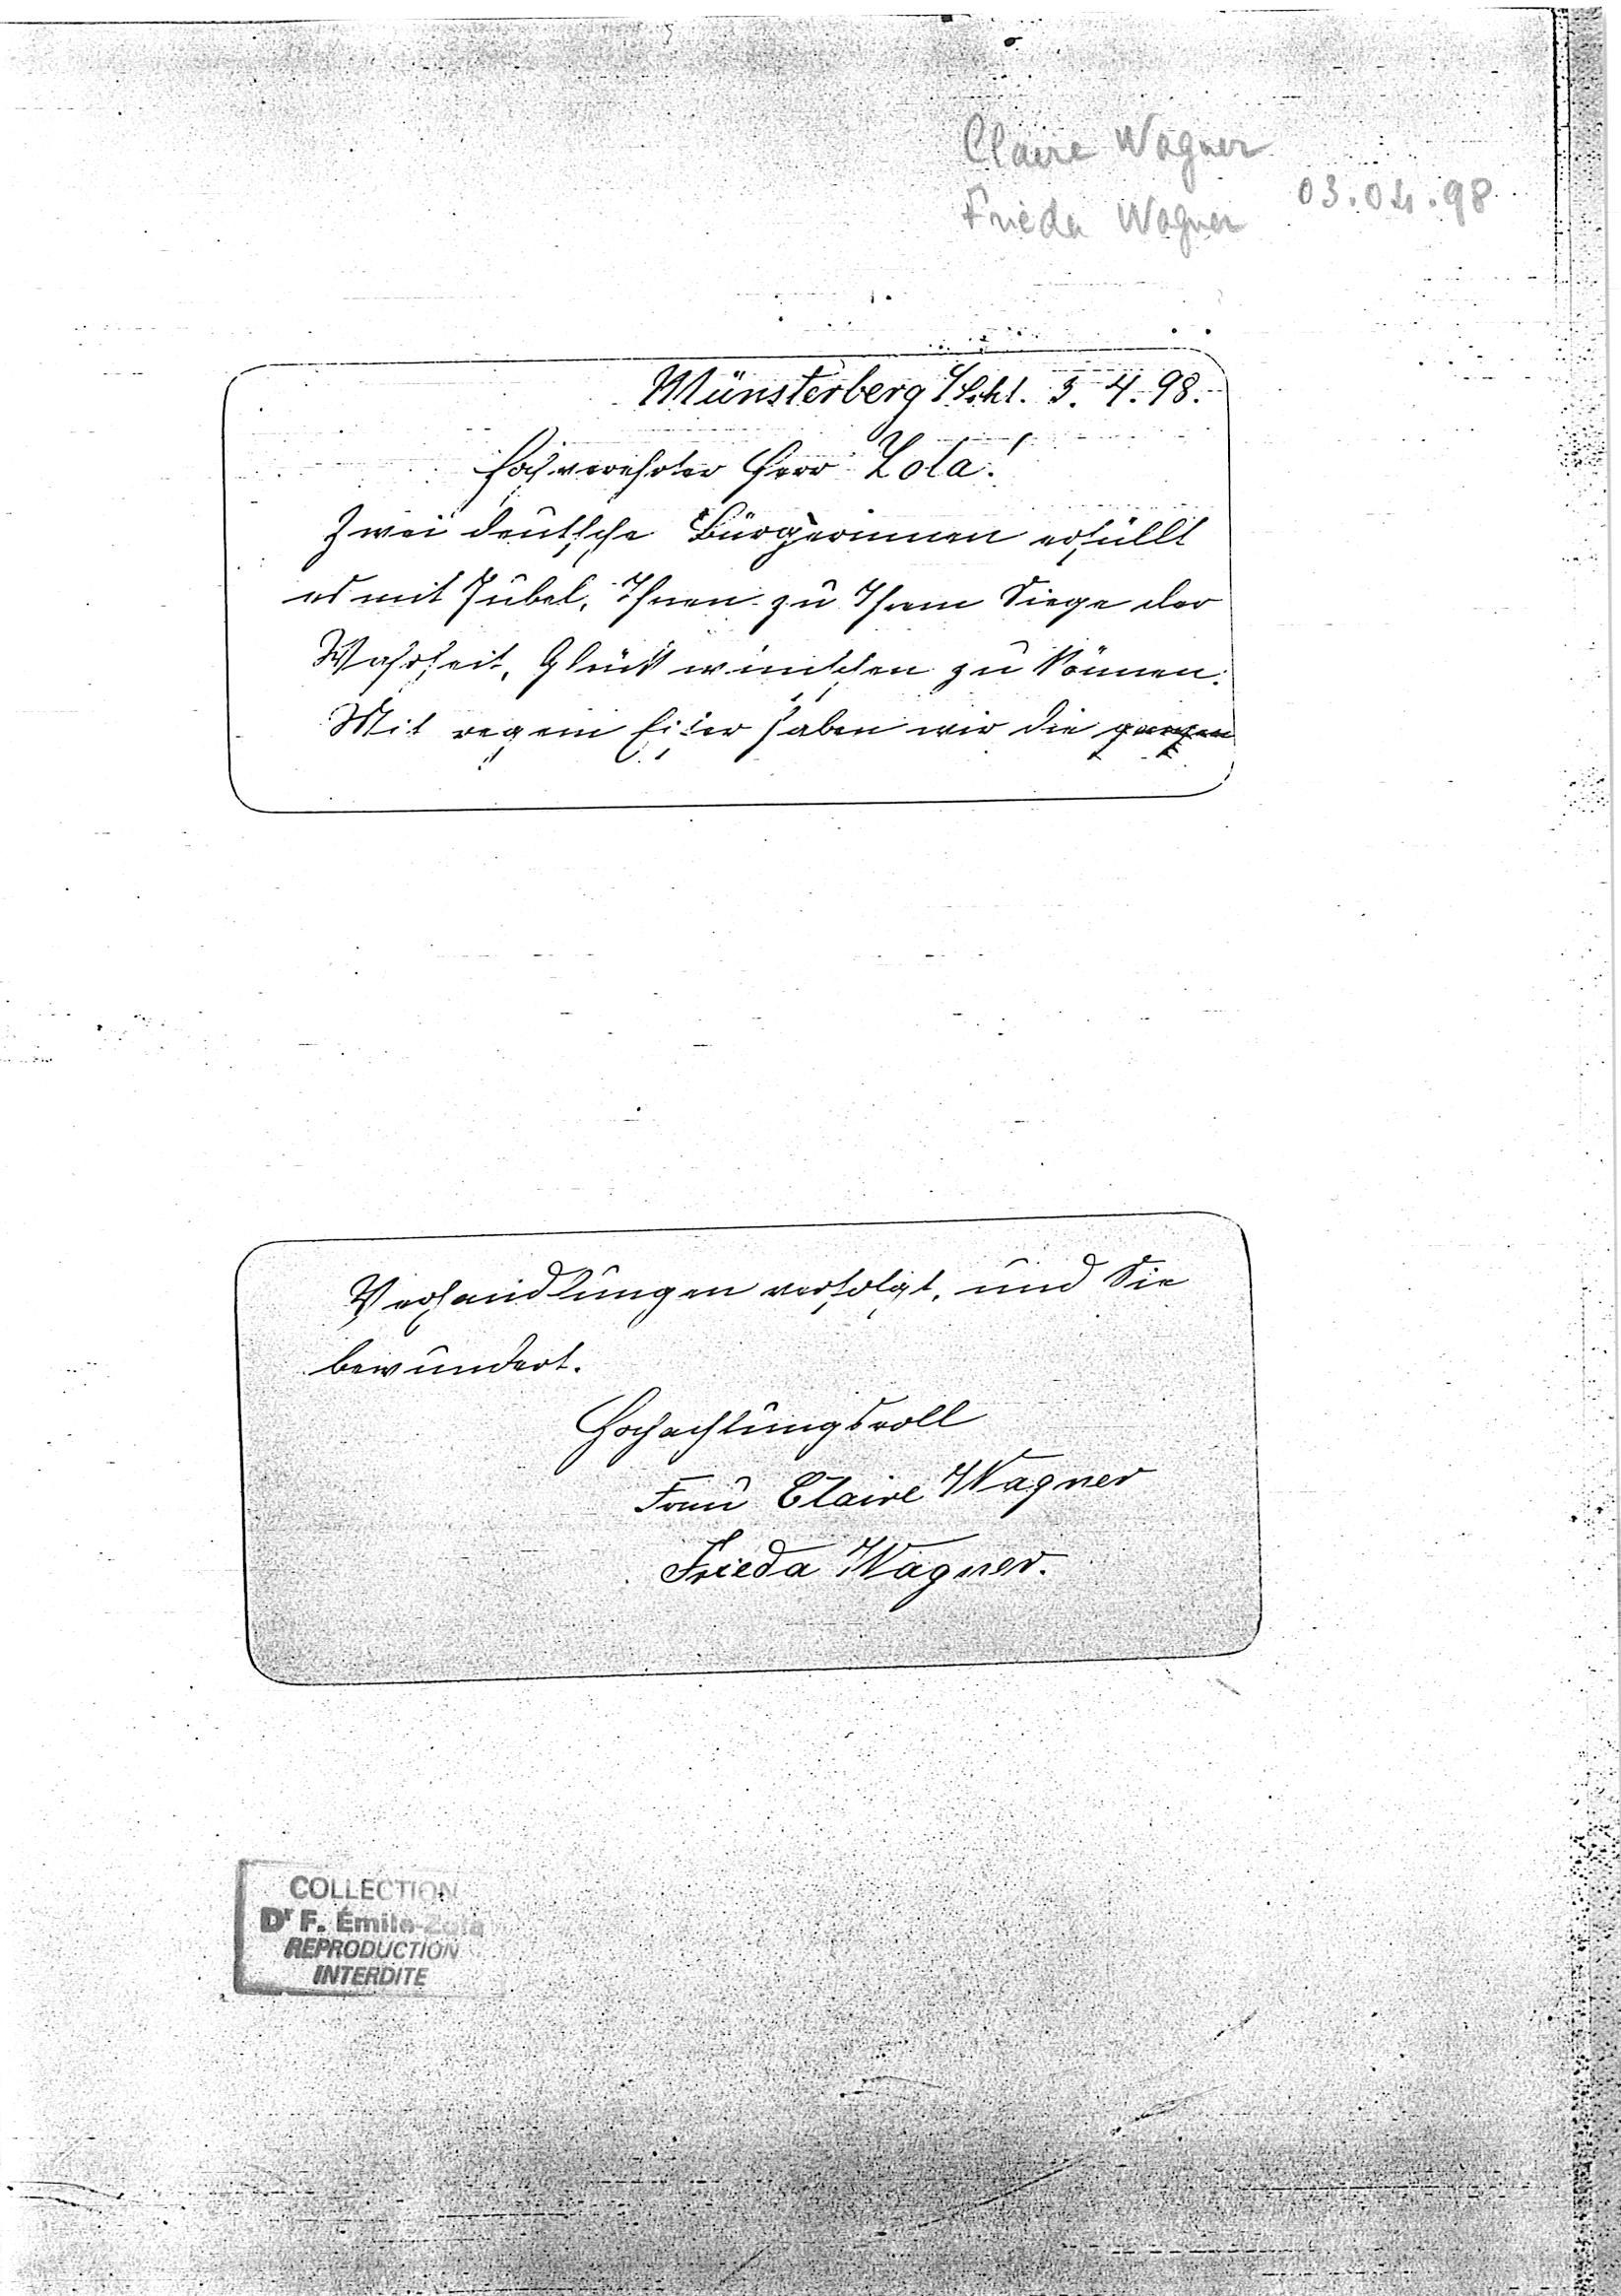 Claire Wagner
Frieda Wagner 03.04.98
Münsterberg i/Schl. 3.4.98.
Hochverehrter Herr Zola!
Zwei deutsche Bürgerinnen erfüllt
es mit Jubel, Ihnen zu Ihrem Siege der
Wahrheit, Glück wünschen zu können.
Mit regem Eifer haben wir die ganzen
Verhandlungen verfolgt, und Sie
bewundert.
Hochachtungsvoll
Frau Claire Wagner
Frieda Wagner.
COLLECTION
Dr F. Émile-Zola
REPRODUCTION
INTERDITE